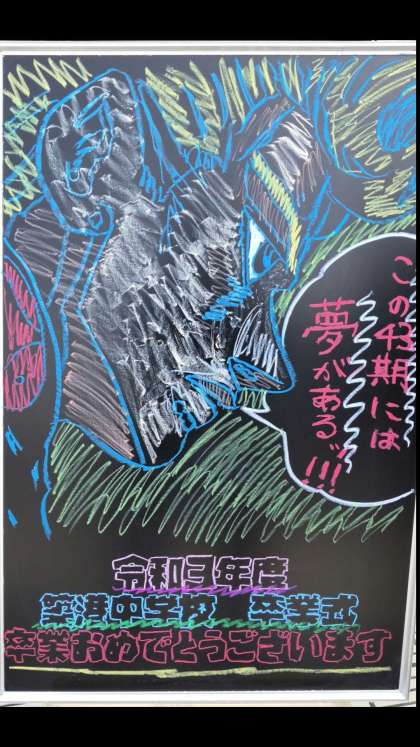 この43期には
夢がある゛!!!
令和3年度
築港中学校 卒業式
卒業おめでとうございます